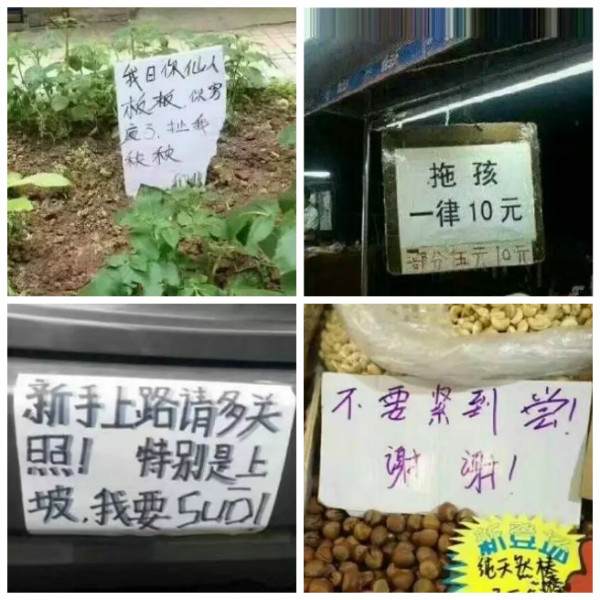 我日你仙人
板板,你穷
疯了,扯我
秧秧
拖孩
一律10元
部分五元10元
新手上路请多关
照! 特别是上
坡,我要SUO!
不要紧到尝!
谢谢!
新登场
纯天然榛